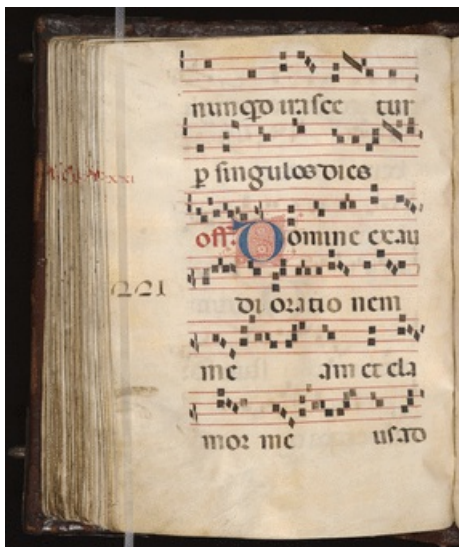 nunqd irasce tur
p singulos dies
off. Domine exau
di oratio nem
me am et cla
mor me us ad